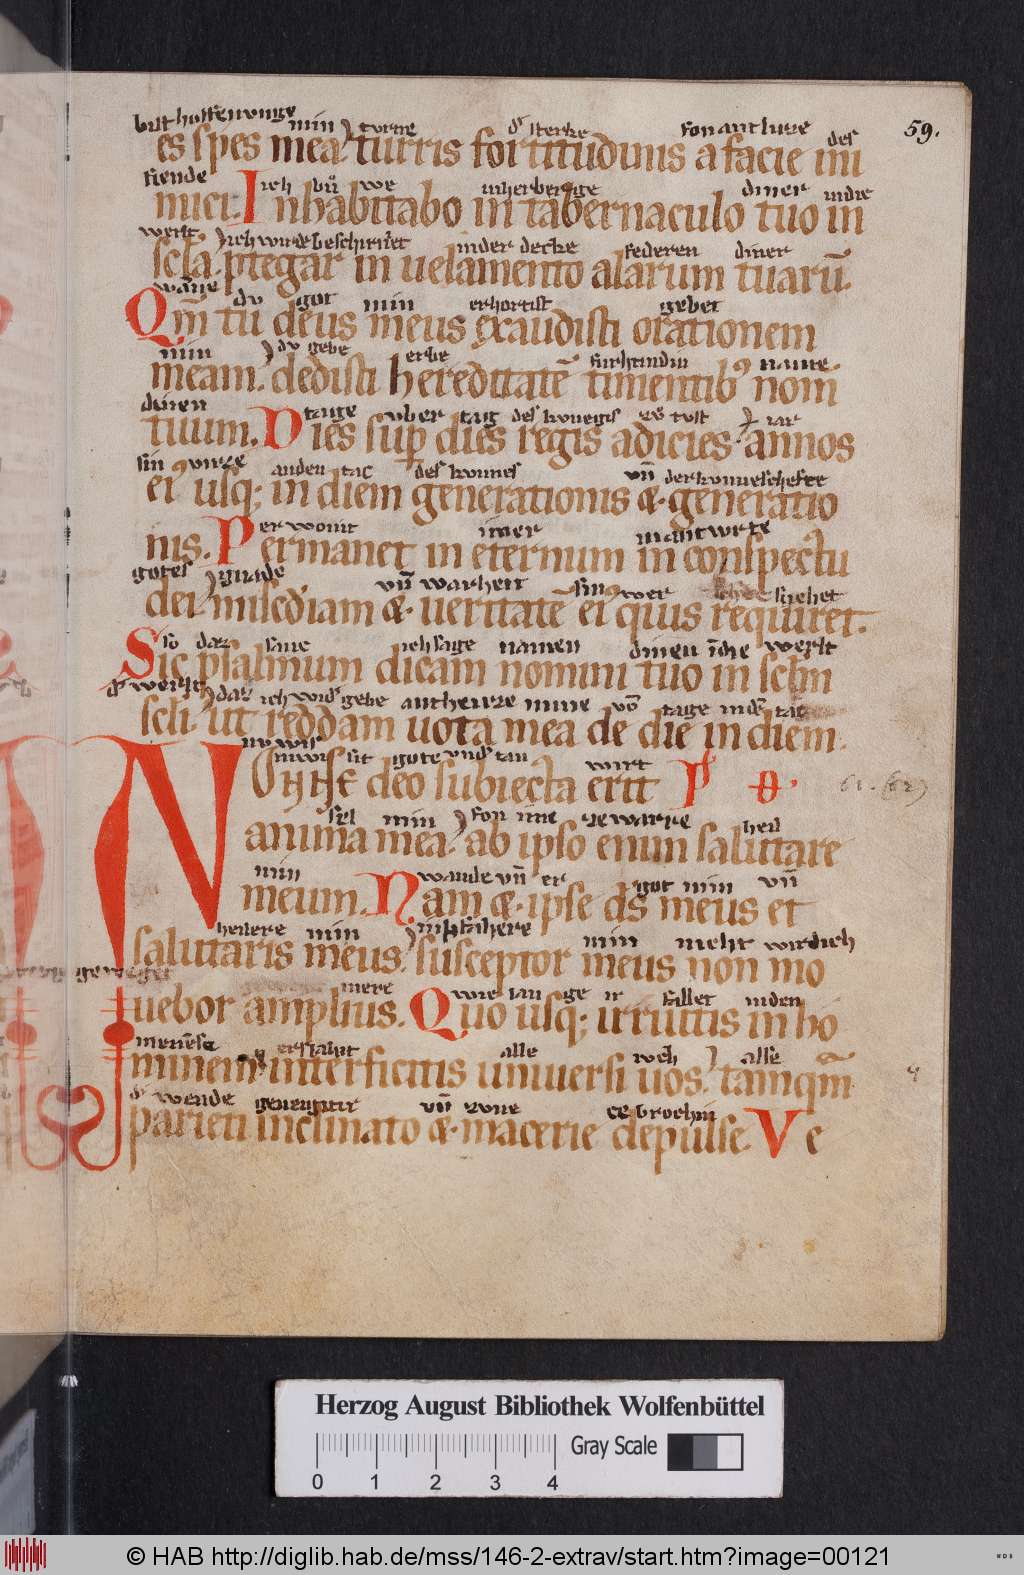 59.
bist hoffenunge min turne d' sterke fon antluze des
es spes mea. turris fortitudinis a facie ini
fiende ich bu we inherberige diner indie
mici. Inhabitabo in tabernaculo tuo in
werlt, ich wirde beschirmet inder decke federen diner
scla. ptegar in uelamento alarum tuarū.
du got min erhortist gebet
Qm̄ tu deus meus exaudisti orationem
min du gebe erbe name
meam. dedisti hereditatē timentib; nom
dinen tage uber tag des kunegis iar
tuum. Dies sup dies regis adicies. annos
sin unze anden tac des kunnes vn̄
ei' usq; in diem generationis &. generatio
er wonit imer
nis. Permanet in eternum in conspectu
gotes gnade vn̄ warheit wer
dei. misc̄diam &. ueritatē ei' quis requiret.
so daz ich sage namen dinen werlt
Sic psalmum dicam nomini tuo in sclm
d' werlt daz gebe mine tage
scli. ut reddam uota mea de die in diem.
nu wis
gote wirt
NONNE deo subiecta erit
61. (62)
sel min fon ime heil
anima mea. ab ipso enim salutare
min wande vn̄ er got min vn̄
meum. Nam &. ipse ds̄ meus et
heilere min min
salutaris meus. susceptor meus non mo
geweget mere
uebor amplius. Quo usq; irruitis in ho
alle alse
minem. interficitis uniuersi uos. tamqm̄
d' wende geneigitir vn̄
parieti inclinato &. macerie depulse. Ve
Herzog August Bibliothek Wolfenbüttel
Gray Scale
0 1 2 3 4
© HAB http://diglib.hab.de/mss/146-2-extrav/start.htm?image=00121